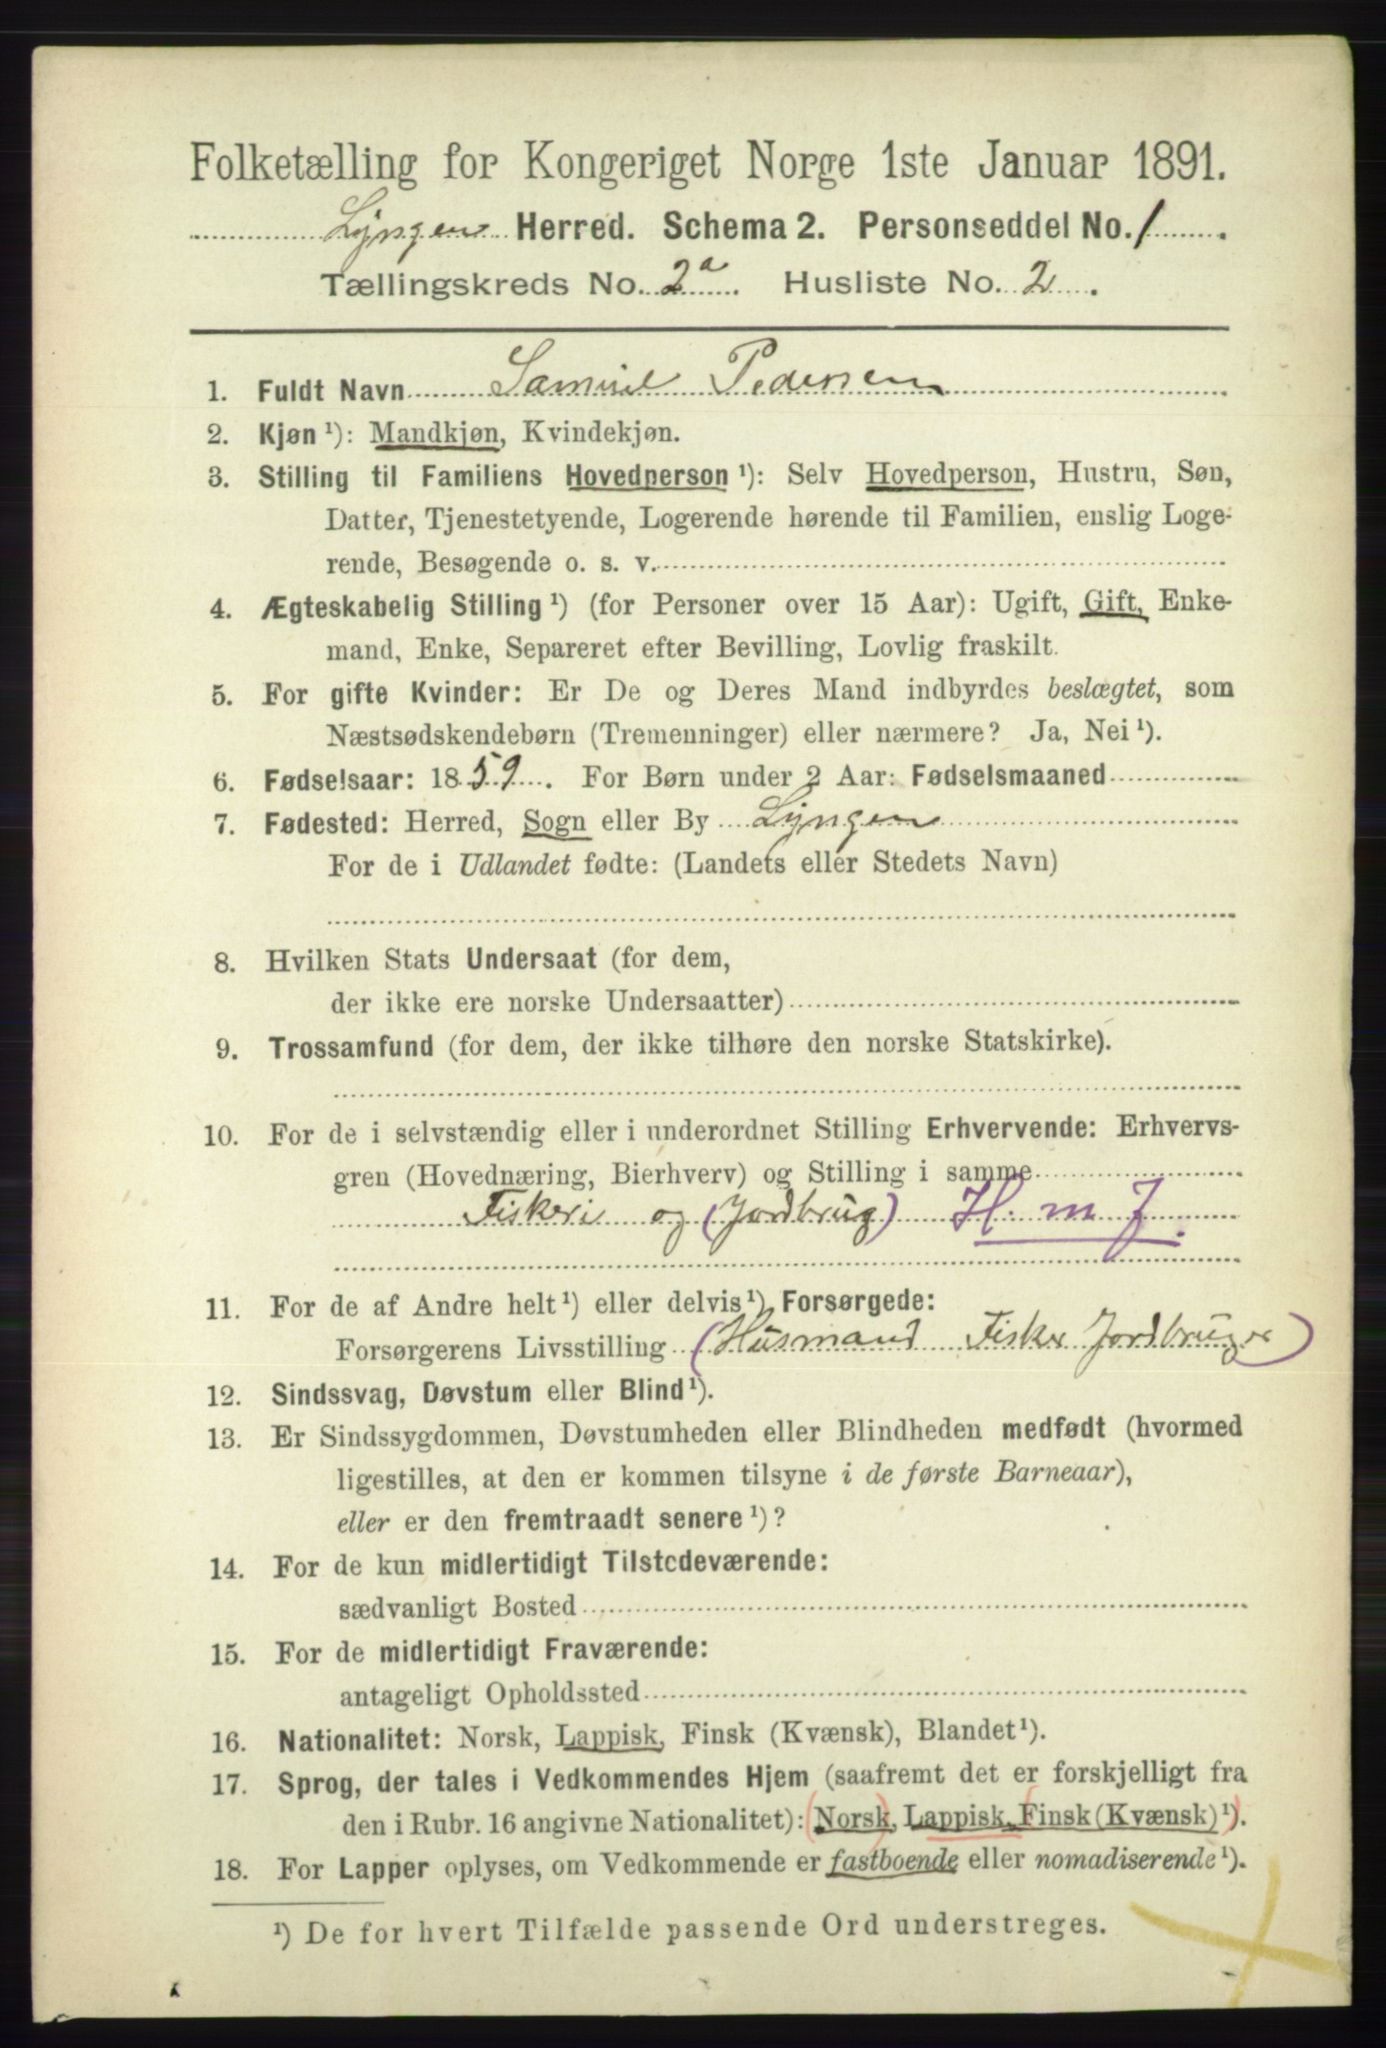 Folketælling for Kongeriget Norge 1ste Januar 1891.
Lyngen Herred. Schema 2. Personseddel No. 1.
Tællingskreds No. 2a. Husliste No. 2.
1. Fuldt Navn Samuel Pedersen
2. Kjøn ¹): Mandkjøn, Kvindekjøn.
3. Stilling til Familiens Hovedperson ¹): Selv Hovedperson, Hustru, Søn,
Datter, Tjenestetyende, Logerende hørende til Familien, enslig Loge-
rende, Besøgende o. s. v.
4. Ægteskabelig Stilling ¹) (for Personer over 15 Aar): Ugift, Gift, Enke-
mand, Enke, Separeret efter Bevilling, Lovlig fraskilt.
5. For gifte Kvinder: Er De og Deres Mand indbyrdes beslægtet, som
Næstsødskendebørn (Tremenninger) eller nærmere? Ja, Nei ¹).
6. Fødselsaar: 1859. For Børn under 2 Aar: Fødselsmaaned
7. Fødested: Herred, Sogn eller By Lyngen
For de i Udlandet fødte: (Landets eller Stedets Navn)
8. Hvilken Stats Undersaat (for dem,
der ikke ere norske Undersaatter)
9. Trossamfund (for dem, der ikke tilhøre den norske Statskirke).
10. For de i selvstændig eller i underordnet Stilling Erhvervende: Erhvervs-
gren (Hovednæring, Bierhverv) og Stilling i samme
Fiskeri og (Jordbrug) H. m J.
11. For de af Andre helt ¹) eller delvis ¹) Forsørgede:
Forsørgerens Livsstilling (Husmand Fisker Jordbruger)
12. Sindssvag, Døvstum eller Blind ¹).
13. Er Sindssygdommen, Døvstumheden eller Blindheden medfødt (hvormed
ligestilles, at den er kommen tilsyne i de første Barneaar),
eller er den fremtraadt senere ¹)?
14. For de kun midlertidigt Tilstedeværende:
sædvanligt Bosted
15. For de midlertidigt Fraværende:
antageligt Opholdssted
16. Nationalitet: Norsk, Lappisk, Finsk (Kvænsk), Blandet ¹).
17. Sprog, der tales i Vedkommendes Hjem (saafremt det er forskjelligt fra
den i Rubr. 16 angivne Nationalitet): (Norsk), Lappisk, (Finsk (Kvænsk) ¹)).
18. For Lapper oplyses, om Vedkommende er fastboende eller nomadiserende ¹).
¹) De for hvert Tilfælde passende Ord understreges.